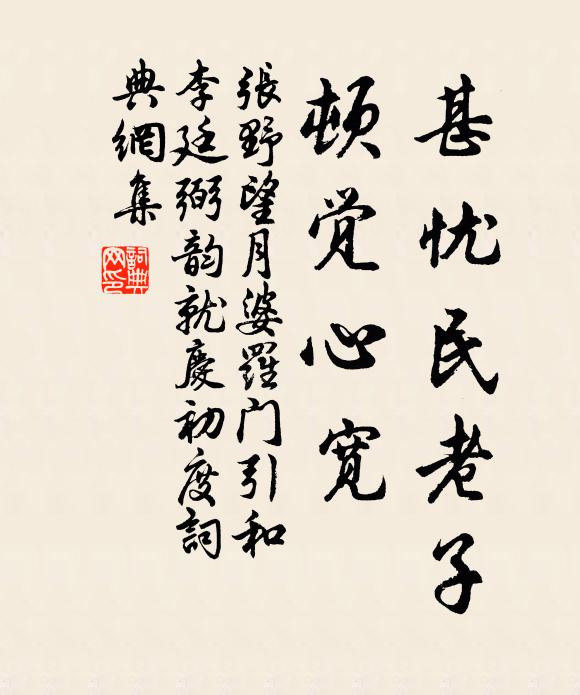 甚忧民老子
顿觉心宽
張野望月婆羅门引和
李廷弼韵就慶初度詞
典網集
詞典
网印